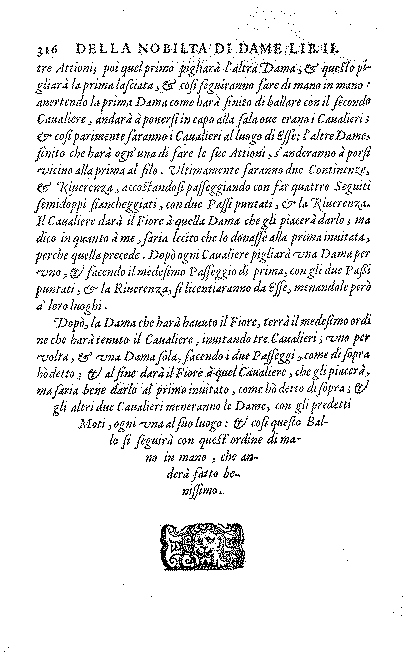 316 DELLA NOBILTA DI DAME LIB. II.
tre Attioni; poi quel primo pigliarà l'altra Dama; & questo pi-
gliarà la prima lasciata, & così seguiranno fare di mano in mano:
auertendo la prima Dama come harà finito di ballare con il secondo
Caualiere, andarà à ponersi in capo alla sala oue erano i Caualieri;
& così parimente faranno i Caualieri al luogo di Esse: l'altre Dame,
finito che harà ogn'una di fare le sue Attioni, s'anderanno à porsi
vicino alla prima al filo. Vltimamente faranno due Continenze,
& Riuerenza, accostandosi passeggiando con far quattro Seguiti
semidoppi fiancheggiati, con due Passi puntati, & la Riuerenza.
Il Caualiere darà il Fiore à quella Dama che gli piacerà darlo; ma
dico in quanto à me, saria lecito che lo donasse alla prima inuitata,
perche quella precede. Dopò ogni Caualiere pigliarà vna Dama per
vno, & facendo il medesimo Passeggio di prima, con gli due Passi
puntati, & la Riuerenza, si licentiaranno da Esse, menandole però
a' loro luoghi.
Dopò, la Dama che harà hauuto il Fiore, terrà il medesimo ordi
ne che harà tenuto il Caualiere, inuitando tre Caualieri; vno per
volta, & vna Dama sola, facendo i due Passeggi, come di sopra
hò detto; & al fine darà il Fiore à quel Caualiere, che gli piacerà,
ma saria bene darlo al primo inuitato, come hò detto di sopra; &
gli altri due Caualieri meneranno le Dame, con gli predetti
Moti, ogni vna al suo luogo: & così questo Bal-
lo si seguirà con quest'ordine di ma-
no in mano, che an-
derà fatto be-
nissimo.